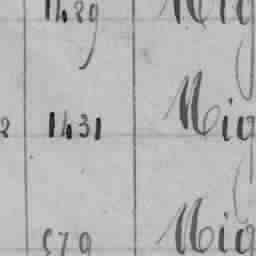 1429 Mig
2 1431 Mig
579 Mig